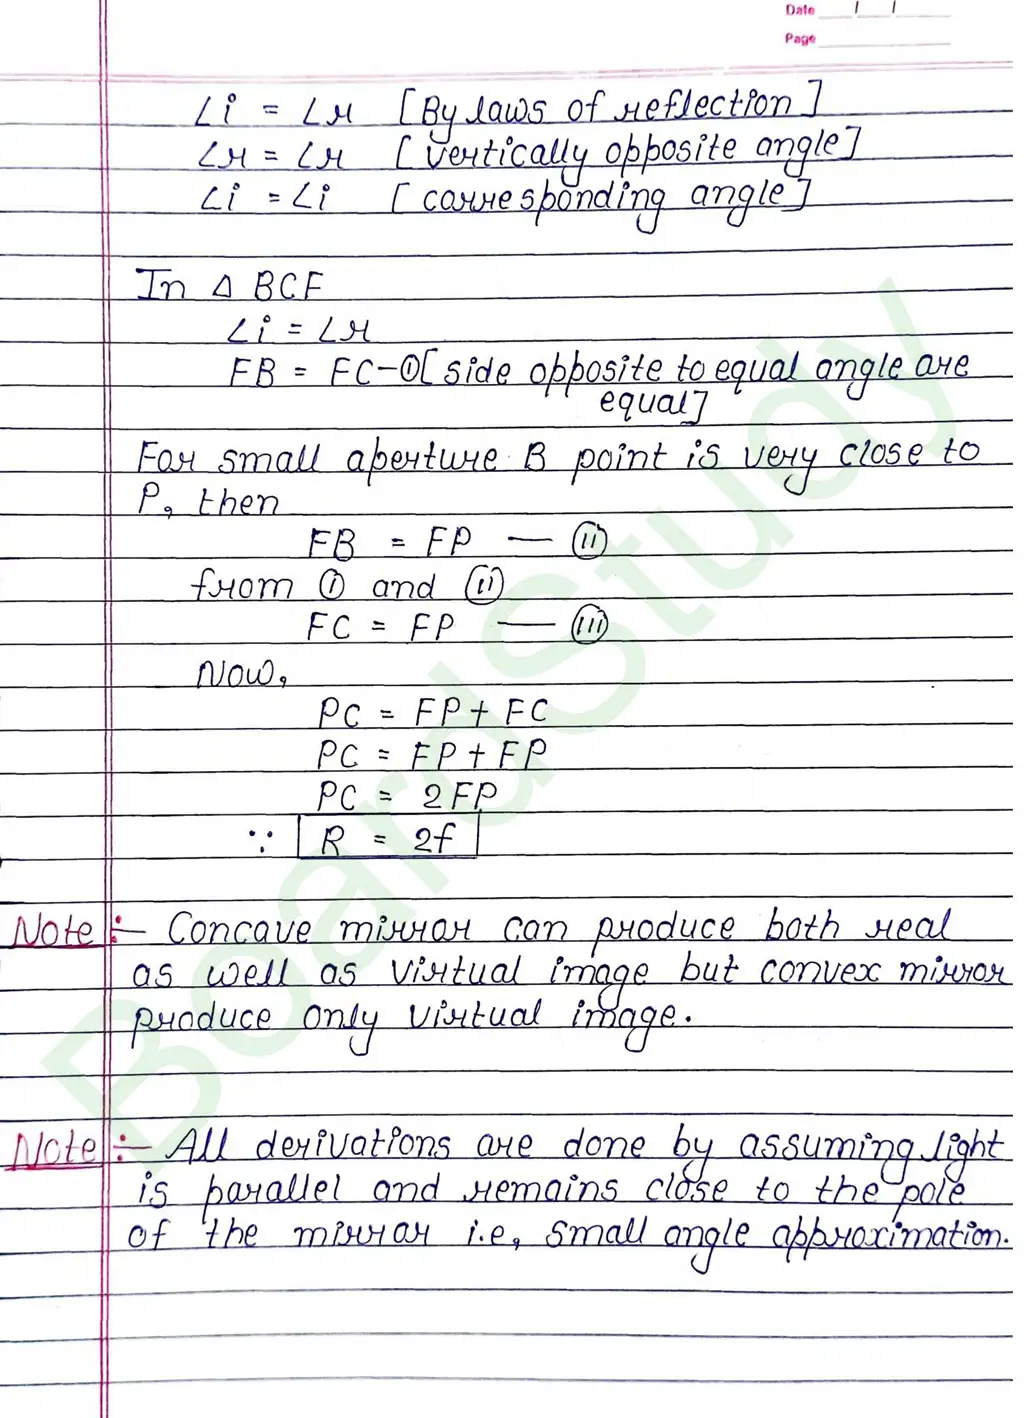 Date / /
Page
∠i = ∠r [By laws of reflection]
∠r = ∠r [vertically opposite angle]
∠i = ∠i [corresponding angle]
In Δ BCF
∠i = ∠r
FB = FC-① [side opposite to equal angle are
equal]
For small aperture B point is very close to
P, then
FB = FP — ⓘⓘ
from ① and ⓘⓘ
FC = FP — ⓘⓘⓘ
Now,
PC = FP + FC
PC = FP + FP
PC = 2FP
∵ R = 2f
Note :- Concave mirror can produce both real
as well as virtual image but convex mirror
produce only virtual image.
Note :- All derivations are done by assuming light
is parallel and remains close to the pole
of the mirror i.e, small angle approximation.
BoardStudy